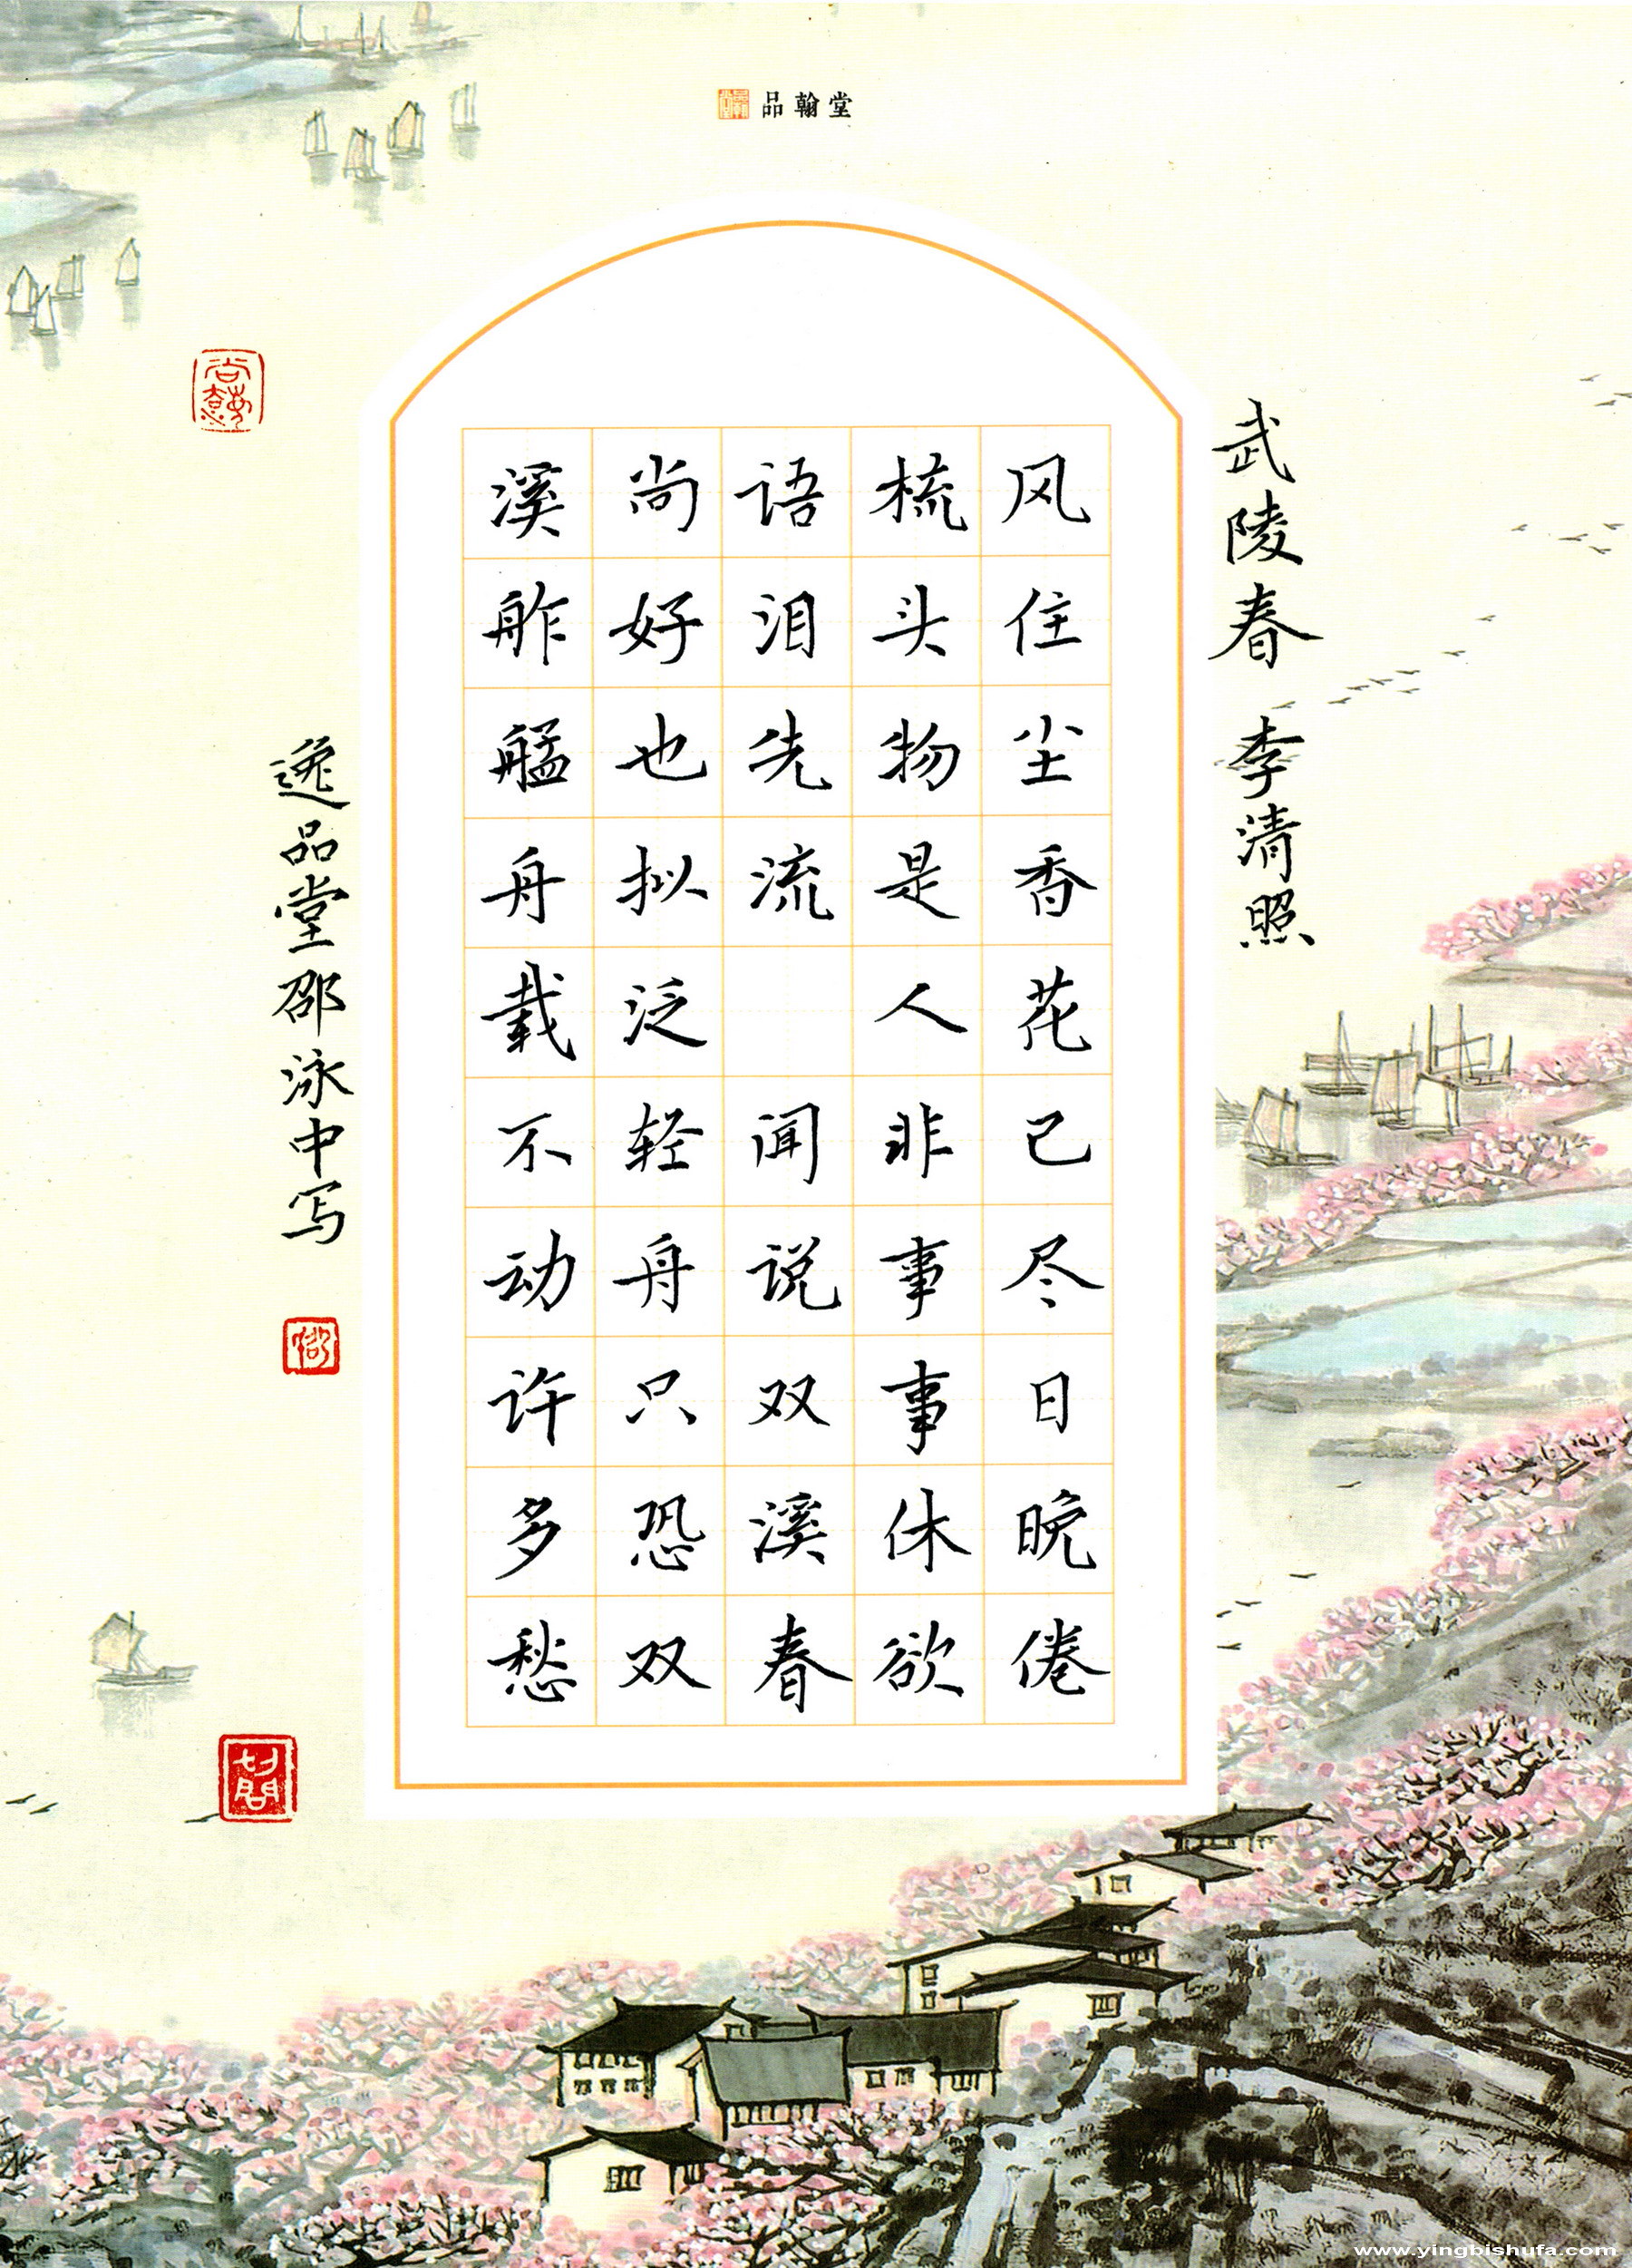 品翰堂
武陵春 李清照
风住尘香花已尽日晚倦
梳头物是人非事事休欲
语泪先流 闻说双溪春
尚好也拟泛轻舟只恐双
溪舴艋舟载不动许多愁
逸品堂邵泳中写
www.yingbishufa.com